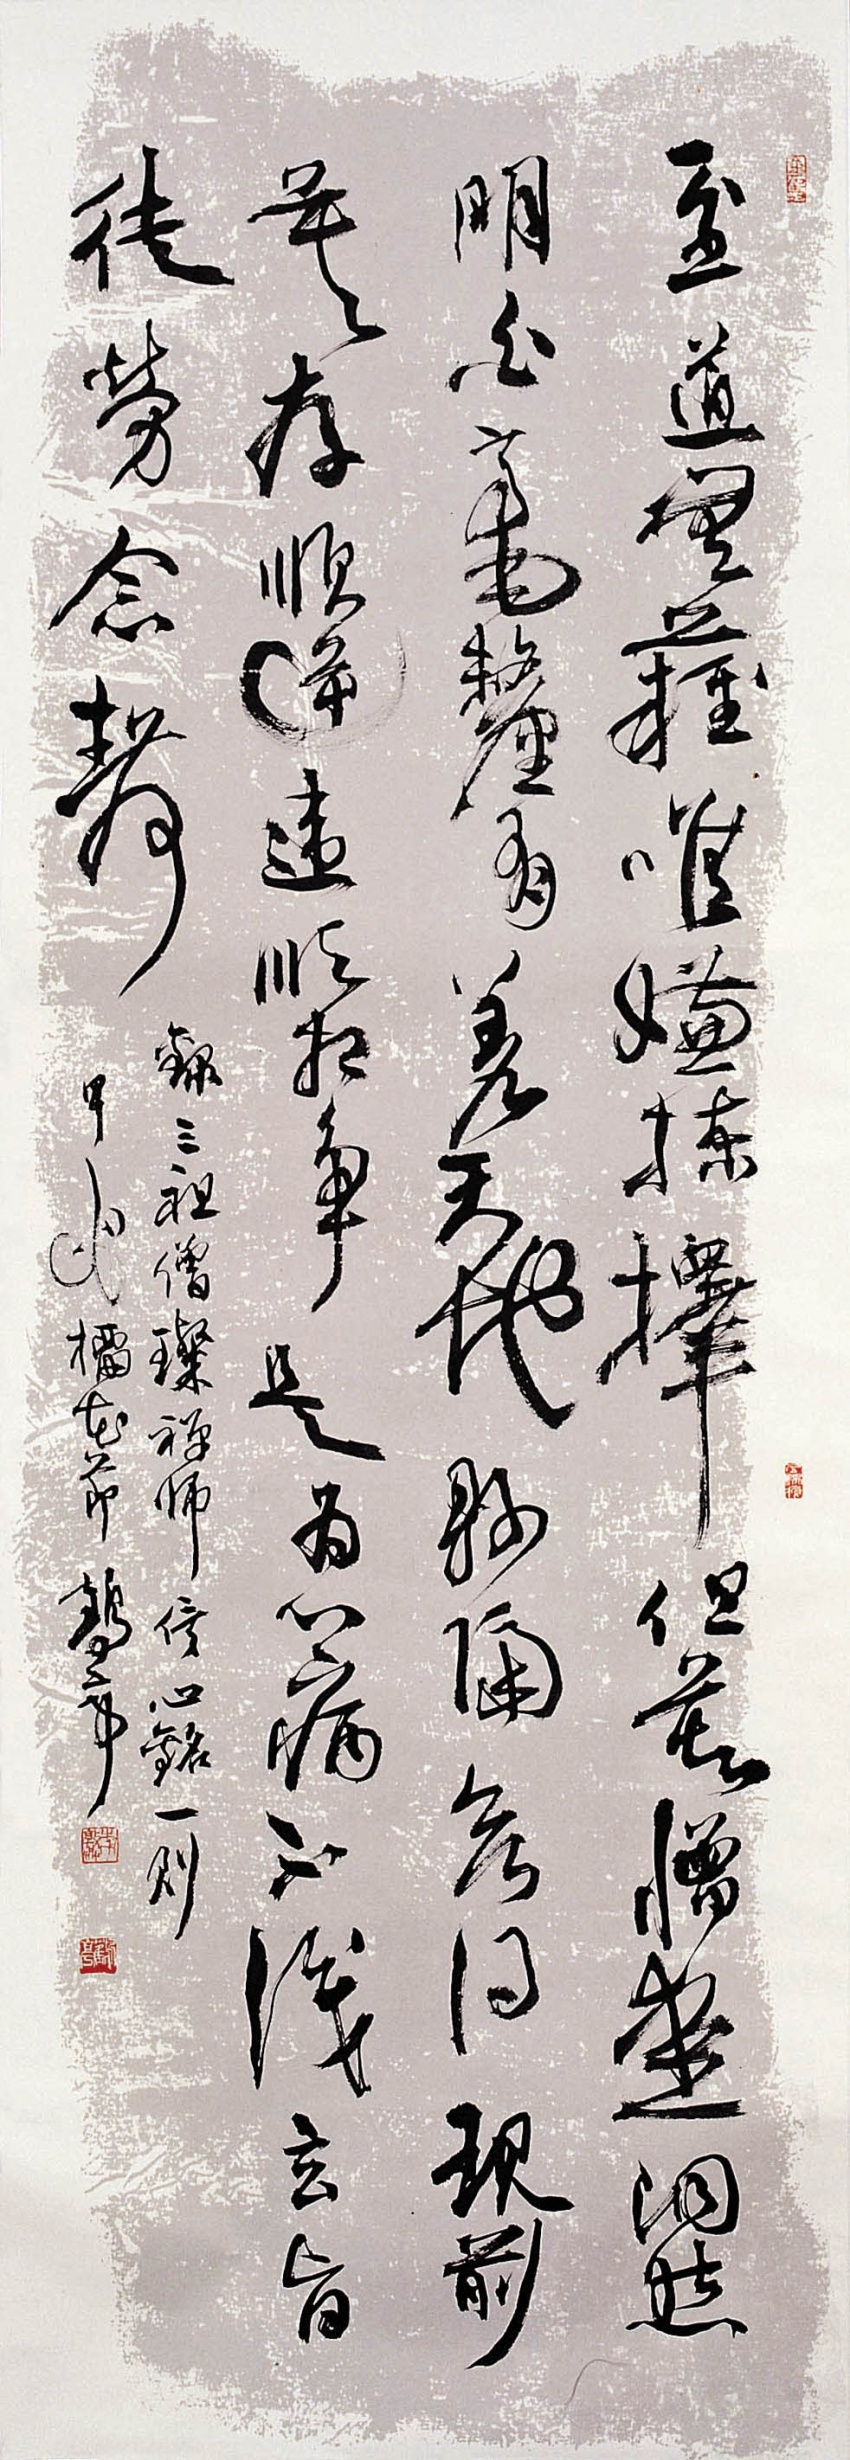 至道無難唯嫌揀擇但莫憎愛洞然
明白毫釐有差天地懸隔欲得現前
莫存順逆違順相爭是為心病不識玄旨
徒勞念靜
錄三祖僧璨禪師信心銘一則
甲戌榴花節鶴